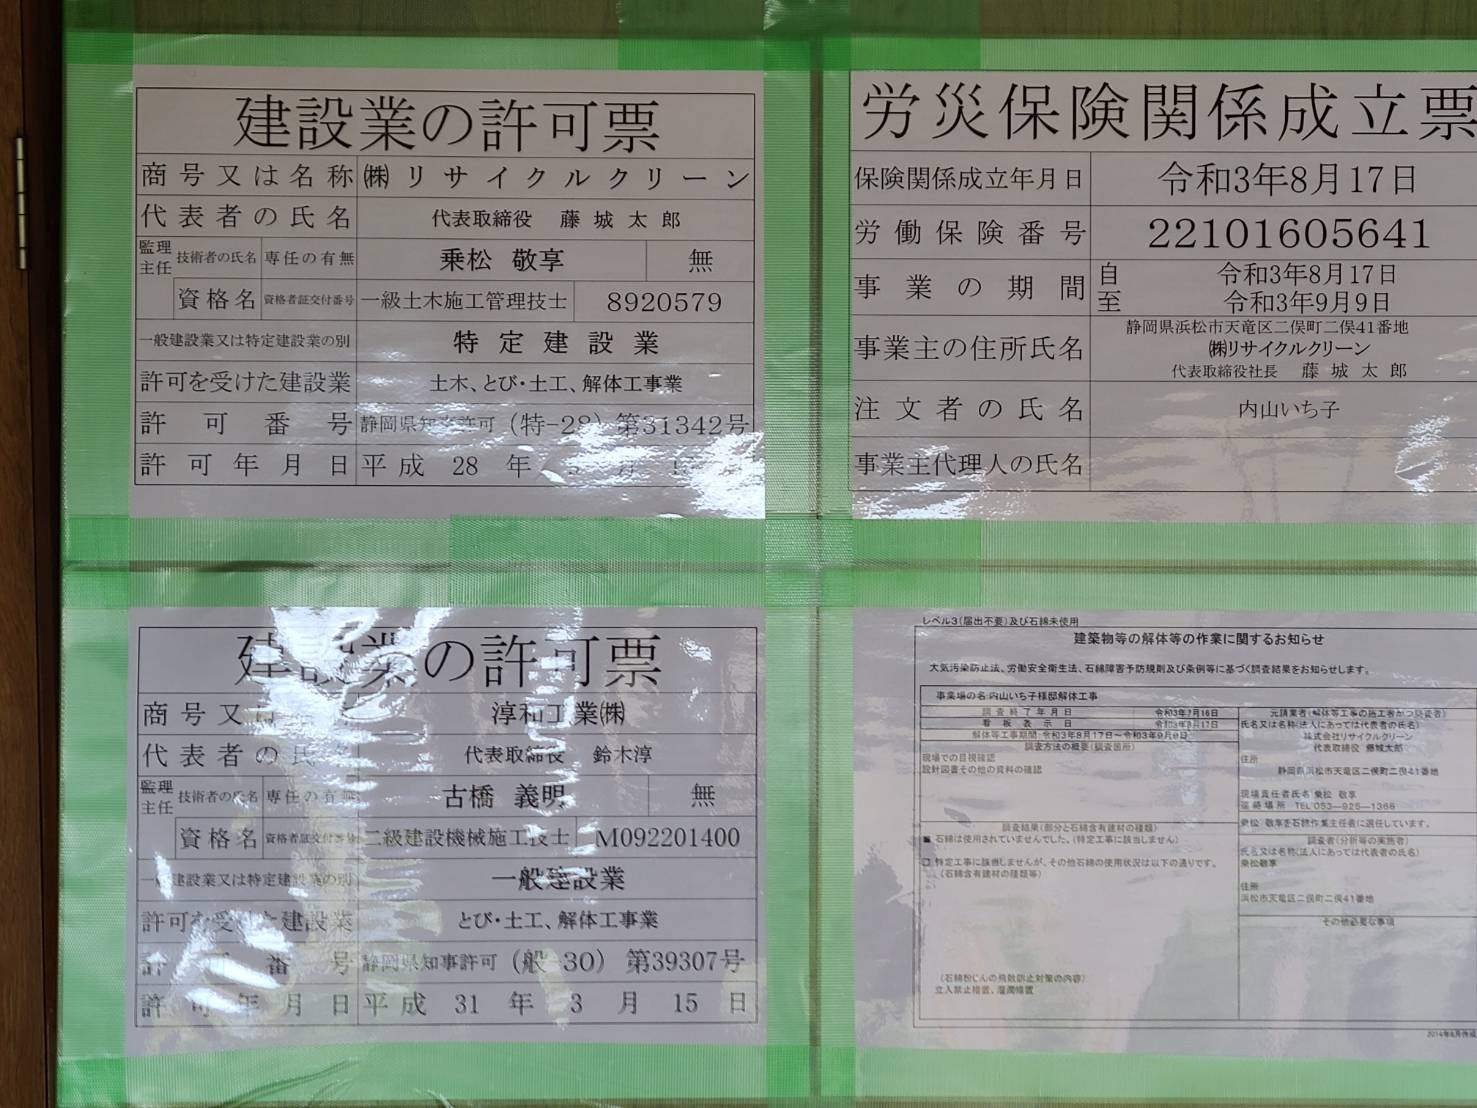 建設業の許可票
商号又は名称 ㈱リサイクルクリーン
代表者の氏名 代表取締役 藤城太郎
監理主任 技術者の氏名 専任の有無 乗松 敬享 無
資格名 資格者証交付番号 一級土木施工管理技士 8920579
一般建設業又は特定建設業の別 特定建設業
許可を受けた建設業 土木、とび・土工、解体工事業
許可番号 静岡県知事許可(特-28)第31342号
許可年月日 平成28年
労災保険関係成立票
保険関係成立年月日 令和3年8月17日
労働保険番号 22101605641
事業の期間 自 令和3年8月17日
至 令和3年9月9日
事業主の住所氏名 静岡県浜松市天竜区二俣町二俣41番地
㈱リサイクルクリーン
代表取締役社長 藤城太郎
注文者の氏名 内山いち子
事業主代理人の氏名
建設業の許可票
商号又は 淳和工業㈱
代表者の氏名 代表取締役 鈴木淳
監理主任 技術者の氏名 専任の有無 古橋 義明 無
資格名 資格者証交付番号 二級建設機械施工技士 M092201400
一般建設業又は特定建設業の別 一般建設業
許可を受けた建設業 とび・土工、解体工事業
許可番号 静岡県知事許可(般-30)第39307号
許可年月日 平成31年3月15日
レベル3(届出不要)及び石綿未使用
建築物等の解体等の作業に関するお知らせ
大気汚染防止法、労働安全衛生法、石綿障害予防規則及び条例等に基づく調査結果をお知らせします。
事業場の名:内山いち子様邸解体工事
調査終了年月日 令和3年7月16日
看板表示日 令和3年8月17日
解体等工事期間:令和3年8月17日～令和3年9月9日
調査方法の概要(調査箇所)
現場での目視確認
設計図書その他の資料の確認
調査結果(部分と石綿含有建材の種類)
■ 石綿は使用されていませんでした。(特定工事に該当しません)
□ 特定工事に該当しませんが、その他石綿の使用状況は以下の通りです。
(石綿含有建材の種類等)
(石綿粉じんの飛散防止対策の内容)
立入禁止措置、湿潤措置
元請業者(解体等工事の施工者かつ調査者)
氏名又は名称(法人にあっては代表者の氏名)
株式会社リサイクルクリーン
代表取締役 藤城太郎
住所
静岡県浜松市天竜区二俣町二俣41番地
現場責任者氏名 乗松 敬享
連絡場所 TEL 053-925-1366
乗松 敬享を石綿作業主任者に選任しています。
調査者(分析等の実施者)
氏名又は名称(法人にあっては代表者の氏名)
乗松敬享
住所
浜松市天竜区二俣町二俣41番地
その他必要な事項